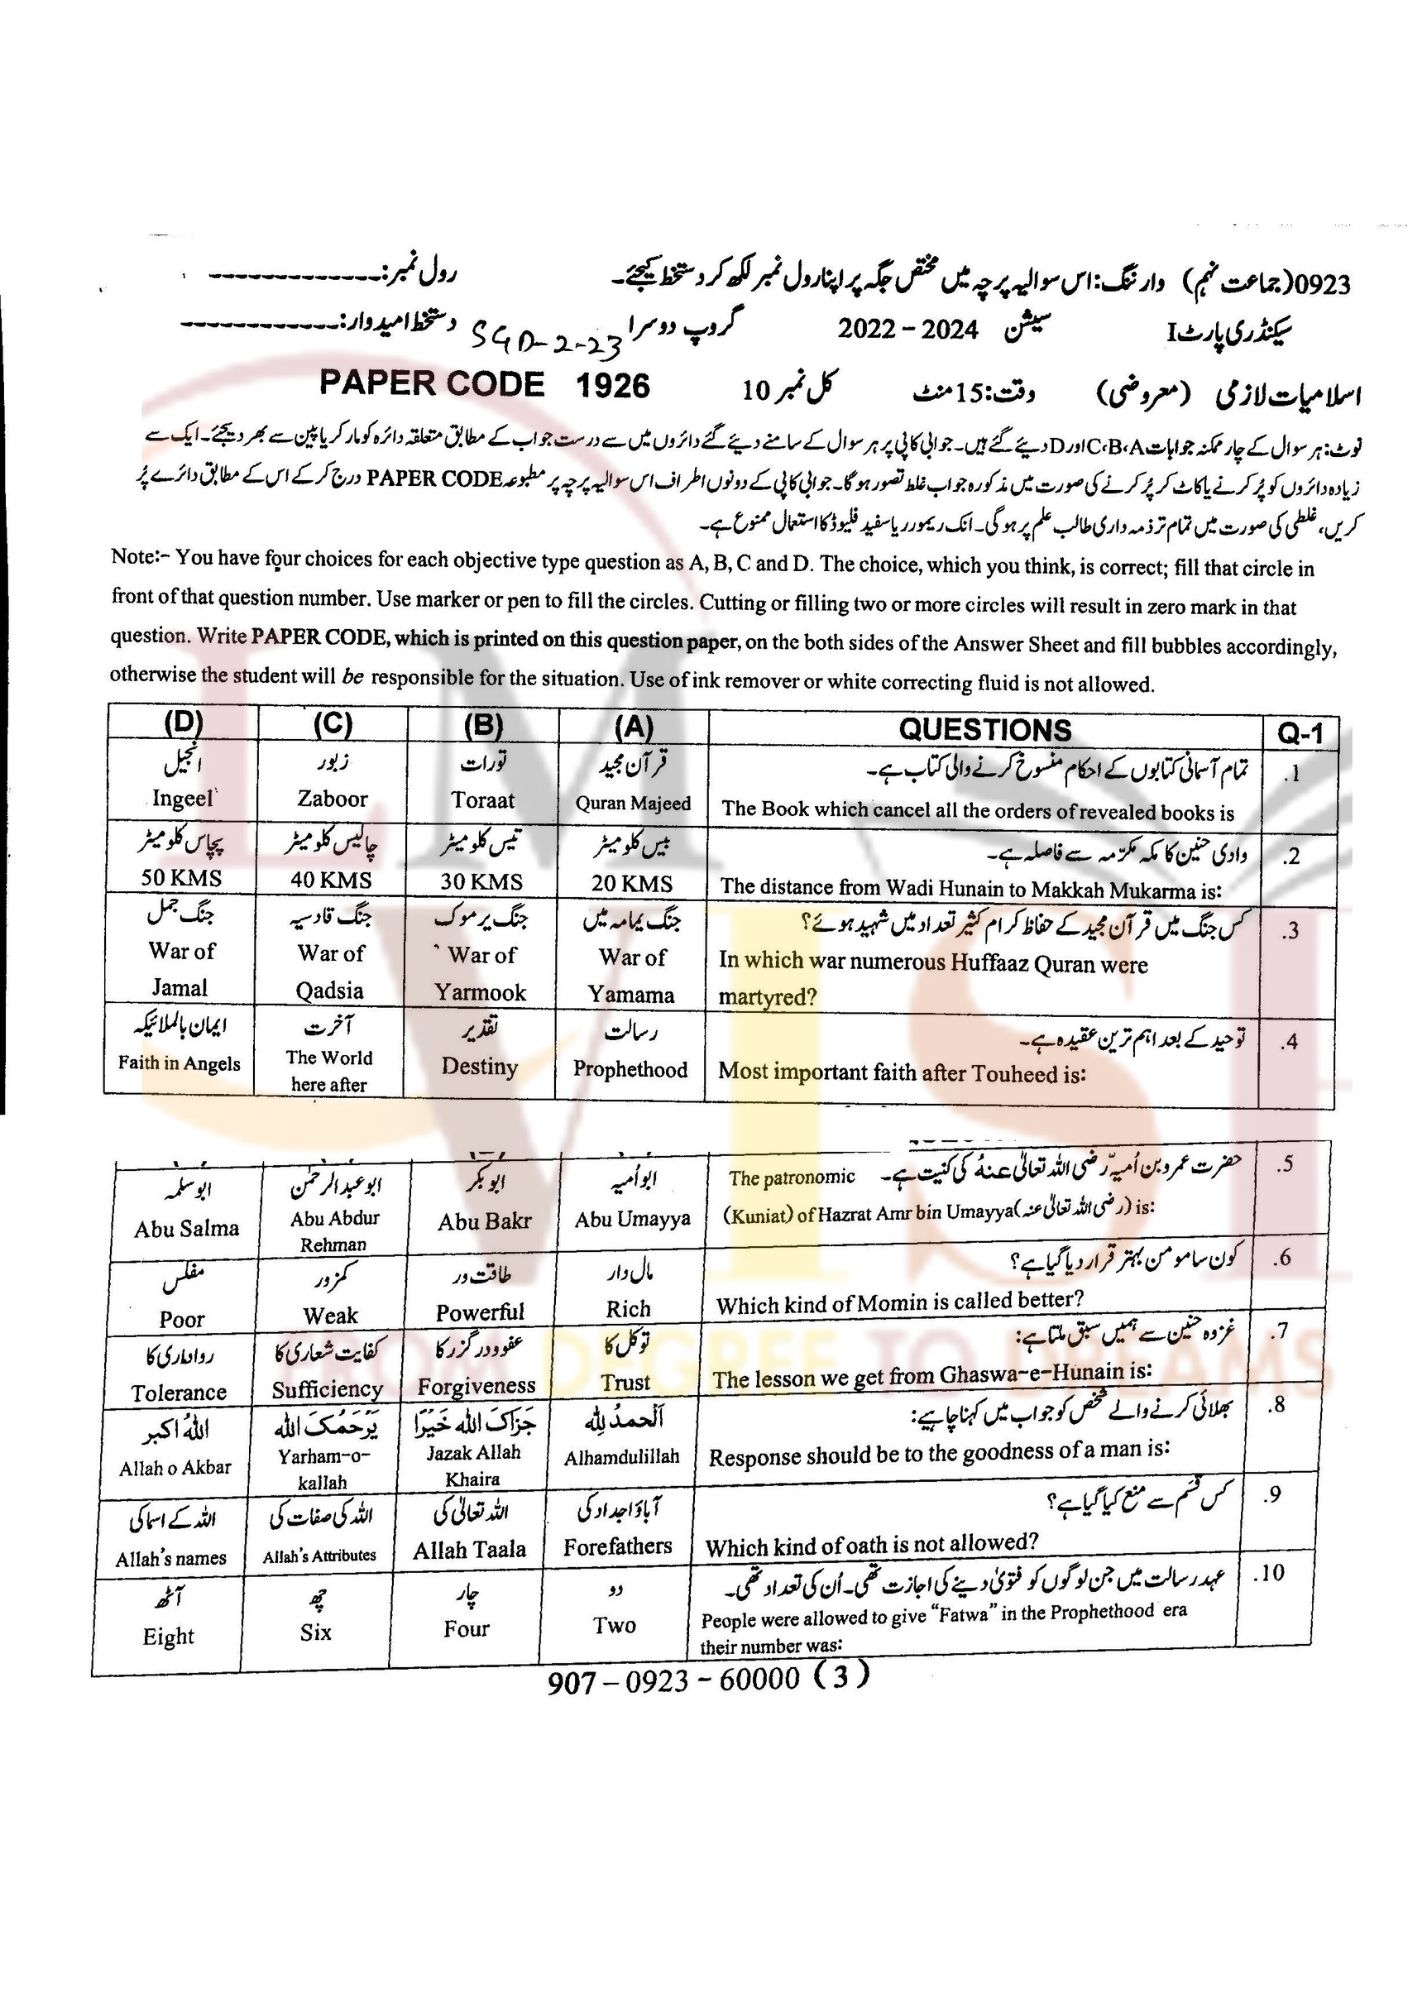 0923(جماعت نہم) وارننگ: اس سوالیہ پرچہ میں مختص جگہ پر اپنا رول نمبر لکھ کر دستخط کیجئے۔ رول نمبر:-------------
سیکنڈری پارٹ I سیشن 2022 – 2024 گروپ دوسرا SGD-2-23 دستخط امیدوار:------------
اسلامیات لازمی (معروضی) وقت: 15 منٹ کل نمبر 10 PAPER CODE 1926
نوٹ: ہر سوال کے چار ممکنہ جوابات A،B،C اور D دیئے گئے ہیں۔ جوابی کاپی پر ہر سوال کے سامنے دیئے گئے دائروں میں سے درست جواب کے مطابق متعلقہ دائرہ کو مارکر یا پین سے بھر دیجئے۔ ایک سے
زیادہ دائروں کو پُر کرنے یا کاٹ کر پُر کرنے کی صورت میں مذکورہ جواب غلط تصور ہوگا۔ جوابی کاپی کے دونوں اطراف اس سوالیہ پرچہ پر مطبوعہ PAPER CODE درج کر کے اس کے مطابق دائرے پُر
کریں، غلطی کی صورت میں تمام تر ذمہ داری طالب علم پر ہوگی۔ انک ریمور یا سفید فلیوڈ کا استعمال ممنوع ہے۔
Note:- You have four choices for each objective type question as A, B, C and D. The choice, which you think, is correct; fill that circle in
front of that question number. Use marker or pen to fill the circles. Cutting or filling two or more circles will result in zero mark in that
question. Write PAPER CODE, which is printed on this question paper, on the both sides of the Answer Sheet and fill bubbles accordingly,
otherwise the student will be responsible for the situation. Use of ink remover or white correcting fluid is not allowed.
(D) (C) (B) (A) QUESTIONS Q-1
انجیل زبور تورات قرآن مجید تمام آسمانی کتابوں کے احکام منسوخ کرنے والی کتاب ہے۔ .1
Ingeel Zaboor Toraat Quran Majeed The Book which cancel all the orders of revealed books is
پچاس کلومیٹر چالیس کلومیٹر تیس کلومیٹر بیس کلومیٹر وادی حنین کا مکہ مکرّمہ سے فاصلہ ہے۔ .2
50 KMS 40 KMS 30 KMS 20 KMS The distance from Wadi Hunain to Makkah Mukarma is:
جنگ جمل جنگ قادسیہ جنگ یرموک جنگ یمامہ میں کس جنگ میں قرآن مجید کے حفاظ کرام کثیر تعداد میں شہید ہوئے؟ .3
War of War of War of War of In which war numerous Huffaaz Quran were
Jamal Qadsia Yarmook Yamama martyred?
ایمان بالملائیکہ آخرت تقدیر رسالت توحید کے بعد اہم ترین عقیدہ ہے۔ .4
Faith in Angels The World Destiny Prophethood Most important faith after Touheed is:
here after
ابو سلمہ ابو عبد الرحمٰن ابو بکر ابو اُمیہ The patronomic حضرت عمرو بن اُمیہّ رضی اللہ تعالیٰ عنہُ کی کنیت ہے۔ .5
Abu Salma Abu Abdur Abu Bakr Abu Umayya (Kuniat) of Hazrat Amr bin Umayya(رضی اللہ تعالیٰ عنہ) is:
Rehman
مفلس کمزور طاقت ور مال دار کون سا مومن بہتر قرار دیا گیا ہے؟ .6
Poor Weak Powerful Rich Which kind of Momin is called better?
رواداری کا کفایت شعاری کا عفو و درگزر کا توکل کا غزوہ حنین سے ہمیں سبق ملتا ہے: .7
Tolerance Sufficiency Forgiveness Trust The lesson we get from Ghaswa-e-Hunain is:
اللہُ اکبر یَرْحَمُکَ اللہ جَزَاکَ اللہ خَیْرًا اَلْحمدُ لِلہِ بھلائی کرنے والے شخص کو جواب میں کہنا چاہیے: .8
Allah o Akbar Yarham-o- Jazak Allah Alhamdulillah Response should be to the goodness of a man is:
kallah Khaira
اللہ کے اسما کی اللہ کی صفات کی اللہ تعالیٰ کی آباؤ اجداد کی کس قسم سے منع کیا گیا ہے؟ .9
Allah's names Allah's Attributes Allah Taala Forefathers Which kind of oath is not allowed?
آٹھ چھ چار دو عہد رسالت میں جن لوگوں کو فتویٰ دینے کی اجازت تھی۔ اُن کی تعداد تھی۔ .10
Eight Six Four Two People were allowed to give "Fatwa" in the Prophethood era
their number was:
907 – 0923 – 60000 ( 3 )